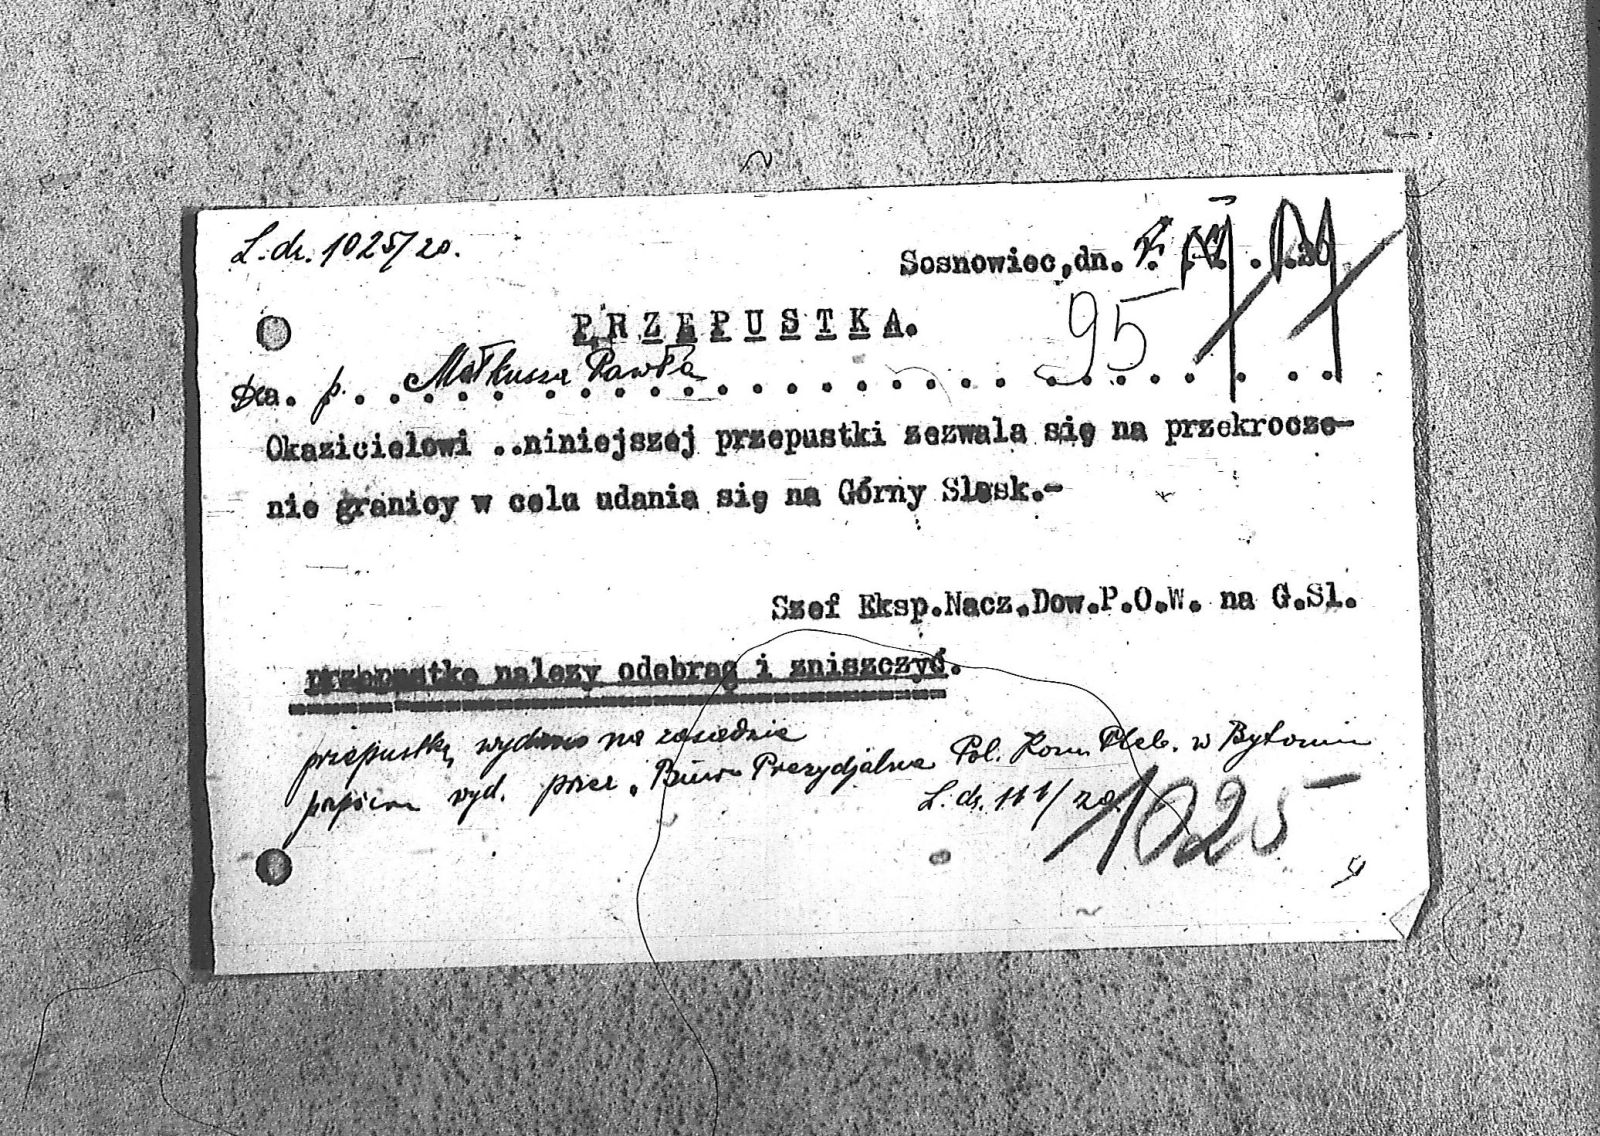 L.dz. 1025/20.
Sosnowiec,dn.
PRZEPUSTKA.
95
Dla. p. Matkusza Pawła
Okazicielowi ..niniejszej przepustki zezwala się na przekrocze-
nie granicy w celu udania się na Górny Slask.-
Szef Eksp.Nacz.Dow.P.O.W. na G.Sl.
przepustke nalezy odebrag i zniszczyć.
przepustkę wydano na zasadzie
wyd. przez Biuro Prezydjalne Pol. Kom. Pleb. w Bytomiu
L. dz. 111/20.
1025